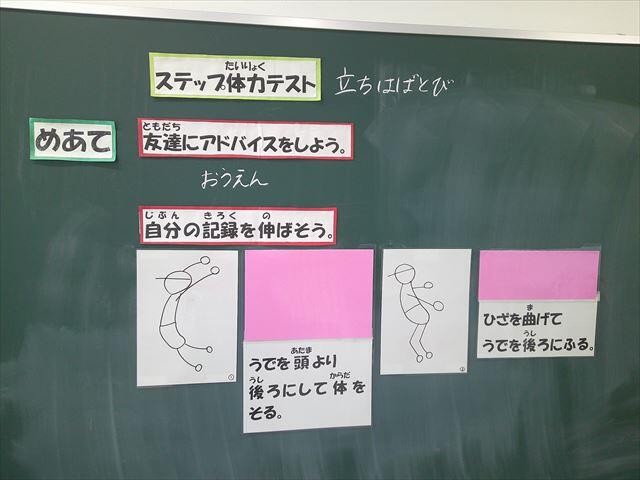 ステップ体力テスト
たいりょく
立ちはばとび
めあて
ともだち
友達にアドバイスをしよう。
おうえん
じぶん きろく の
自分の記録を伸ばそう。
あたま
うでを頭より
うし からだ
後ろにして体を
そる。
ま
ひざを曲げて
うし
うでを後ろにふる。